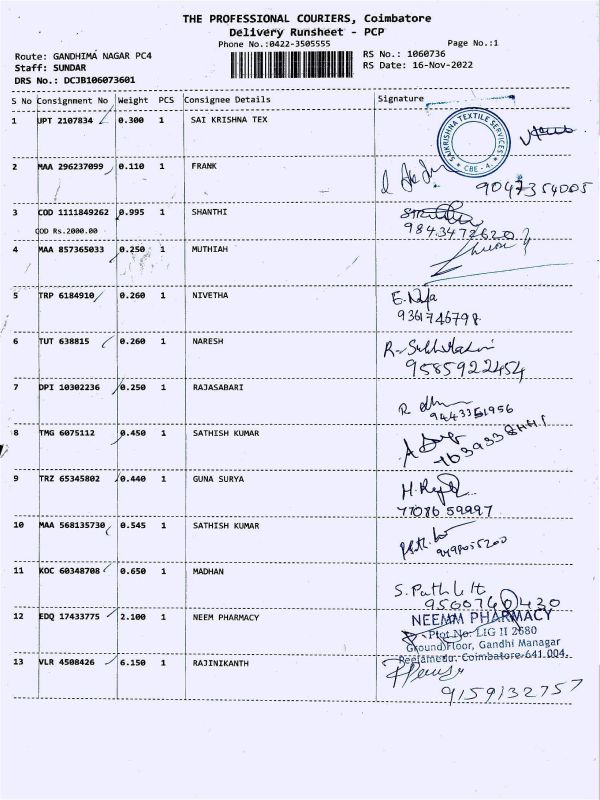 THE PROFESSIONAL COURIERS, Coimbatore
Delivery Runsheet - PCP
Phone No.:0422-3505555
Page No.:1
Route: GANDHIMA NAGAR PC4
RS No.: 1060736
Staff: SUNDAR
RS Date: 16-Nov-2022
DRS No.: DCJB106073601
S No Consignment No Weight PCS Consignee Details Signature
1 UPT 2107834 0.300 1 SAI KRISHNA TEX
SAIKRISHNA TEXTILE SERVICES
CBE - 4.
2 MAA 296237099 0.110 1 FRANK
9047354005
3 COD 1111849262 0.995 1 SHANTHI
COD Rs.2000.00
9843472620
4 MAA 857365033 0.250 1 MUTHIAH
5 TRP 6184910 0.260 1 NIVETHA
9361746798
6 TUT 638815 0.260 1 NARESH
9585922454
7 DPI 10302236 0.250 1 RAJASABARI
8 TMG 6075112 0.450 1 SATHISH KUMAR
9 TRZ 65345802 0.440 1 GUNA SURYA
77086 59997
10 MAA 568135730 0.545 1 SATHISH KUMAR
11 KOC 60348708 0.650 1 MADHAN
9500760430
12 EDQ 17433775 2.100 1 NEEM PHARMACY
NEEMM PHARMACY
Plot No: LIG II 2680
Ground Floor, Gandhi Managar
Peelamedu, Coimbatore-641 004.
13 VLR 4508426 6.150 1 RAJINIKANTH
9159132757